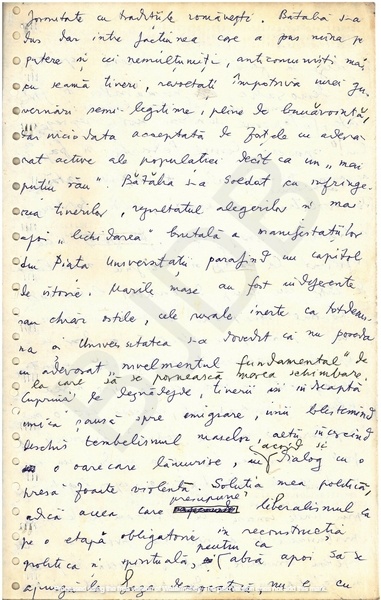 formutate cu tradițiile românești. Bătălia s-a
dus dar între facțiunea care a pus mîna pe
putere și cei nemulțumiți, anticomuniști mai
cu seamă tineri, revoltați împotriva unei gu-
vernări semi-legitime, pline de bunăvoință,
dar niciodată acceptată de forțele cu adevă-
rat active ale populației decît ca un „mai
puțin rău". Bătălia s-a soldat cu înfrînge-
rea tinerilor, rezultatul alegerilor și mai
apoi „lichidarea" brutală a manifestațiilor
din Piața Universității parafînd un capitol
de istorie. Marile mase au fost indiferente
sau chiar ostile, cele rurale inerte ca totdeau-
na și Universitatea s-a dovedit că nu poseda
cu adevărat „nivelmentul fundamental" de
la care să se pornească marea schimbare.
Cuprinși de deznădejde, tinerii își îndreaptă
unica spre emigrare, unii blestemînd
deschis tembelismul maselor, alții încercînd
o oarecare lămurire, un acord și dialog cu o
presă foarte violentă. Soluția mea politică,
adică aceea care presupune liberalismul ca
pe o etapă obligatorie în reconstrucția
politică și spirituală, pentru ca abia apoi să se
ajungă la nu e cu